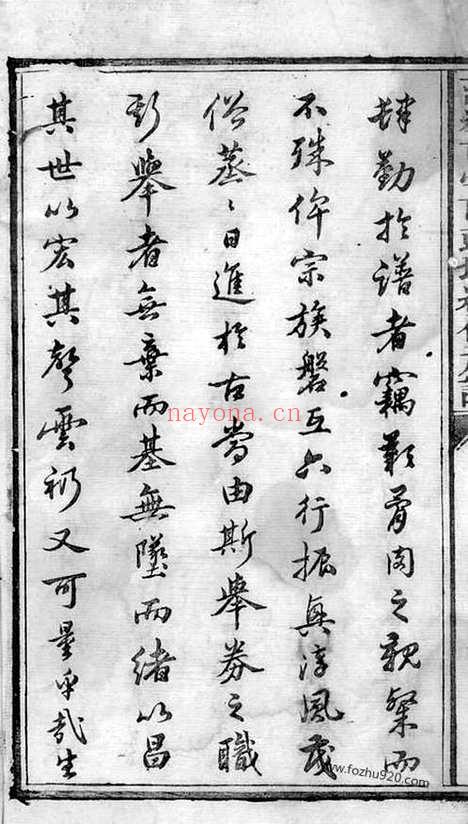 肄勤於譜者竊歎骨肉之親粲而
不殊俾宗族磐互六行振興淳風茂
俗蒸〻日進於古當由斯舉券之職
斯舉者無棄而基無墜而緒以昌
其世以宏其聲雲礽又可量乎哉生
nayona.cn
www.fozhu920.com